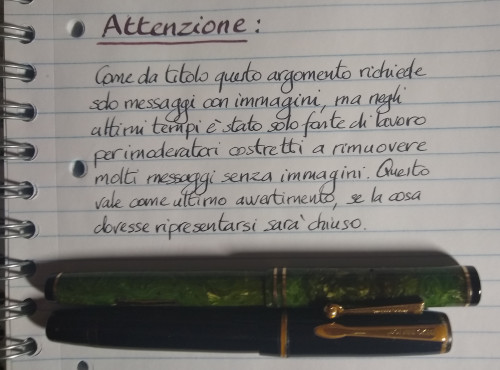 Attenzione:
Come da titolo questo argomento richiede
solo messaggi con immagini, ma negli
ultimi tempi è stato solo fonte di lavoro
per i moderatori costretti a rimuovere
molti messaggi senza immagini. Questo
vale come ultimo avvertimento, se la cosa
dovesse ripresentarsi sarà chiuso.